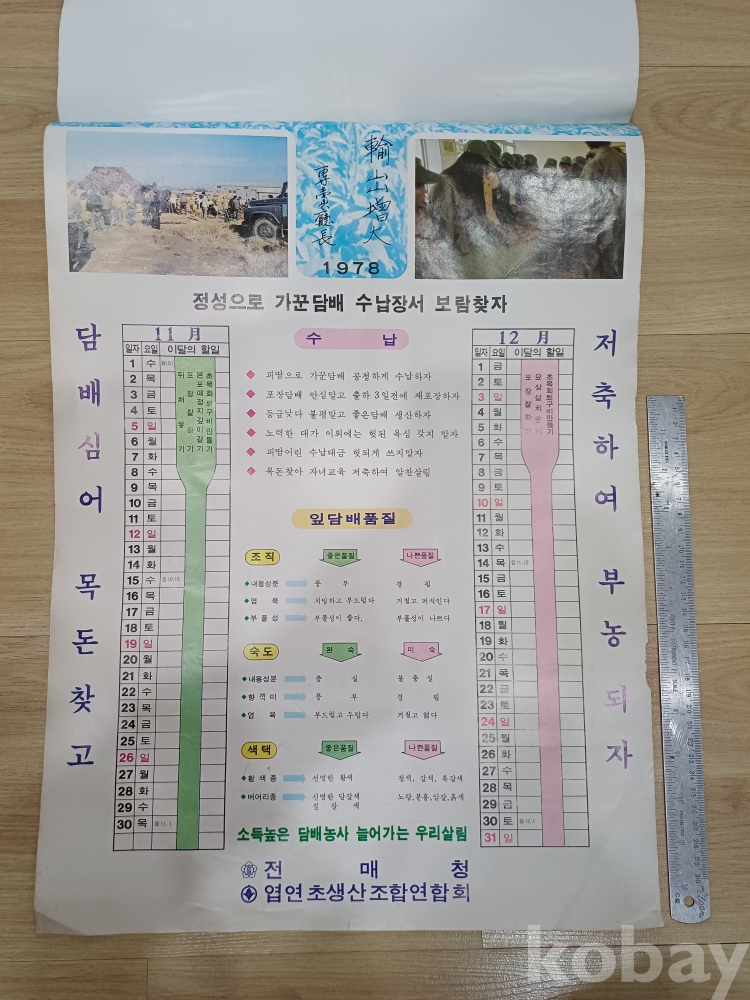 輸出增大
專賣廳長
1978
정성으로 가꾼담배 수납장서 보람찾자
담배심어 목돈찾고
11 月
일자 요일 이달의 할일
초목회퇴구비만들기
본포예정지깊이갈기
포장잘하기
뒤처쟁기
1 수 음10.1
2 목
3 금
4 토
5 일
6 월
7 화
8 수
9 목
10 금
11 토
12 일
13 월
14 화
15 수 음10.15
16 목
17 금
18 토
19 일
20 월
21 화
22 수
23 목
24 금
25 토
26 일
27 월
28 화
29 수
30 목 음11.1
수 납
피땀으로 가꾼담배 공정하게 수납하자
포장담배 안심말고 출하 3일전에 재포장하자
등급낮다 불평말고 좋은담배 생산하자
노력한 대가 이외에는 헛된 욕심 갖지 말자
피땀어린 수납대금 헛되게 쓰지말자
목돈찾아 자녀교육 저축하여 알찬살림
잎담배품질
조직 좋은품질 나쁜품질
내용성분 풍 부 결 핍
엽 육 치밀하고 부드럽다 거칠고 저석인다
부풀성 부풀성이 좋다. 부풀성이 나쁘다
숙도 완 숙 미 숙
내용성분 충 실 불 충 실
향끽미 풍 부 결 핍
엽 육 부드럽고 두텁다 거칠고 엷다
색택 좋은품질 나쁜품질
황색종 선명한 황색 청색, 갈색, 흑갈색
버어리종 선명한 담갈색 노랑,분홍,암갈,흙색
짙 갈 색
12 月
일자 요일 이달의 할일
초목회퇴구비만들기
묘상설치준비
포장잘하기
1 금
2 토
3 일
4 월
5 화
6 수
7 목
8 금
9 토
10 일
11 월
12 화
13 수
14 목 음11.15
15 금
16 토
17 일
18 월
19 화
20 수
21 목
22 금
23 토
24 일
25 월
26 화
27 수
28 목
29 금
30 토 음12.1
31 일
저축하여 부농되자
소득높은 담배농사 늘어가는 우리살림
전 매 청
엽연초생산조합연합회
kobay